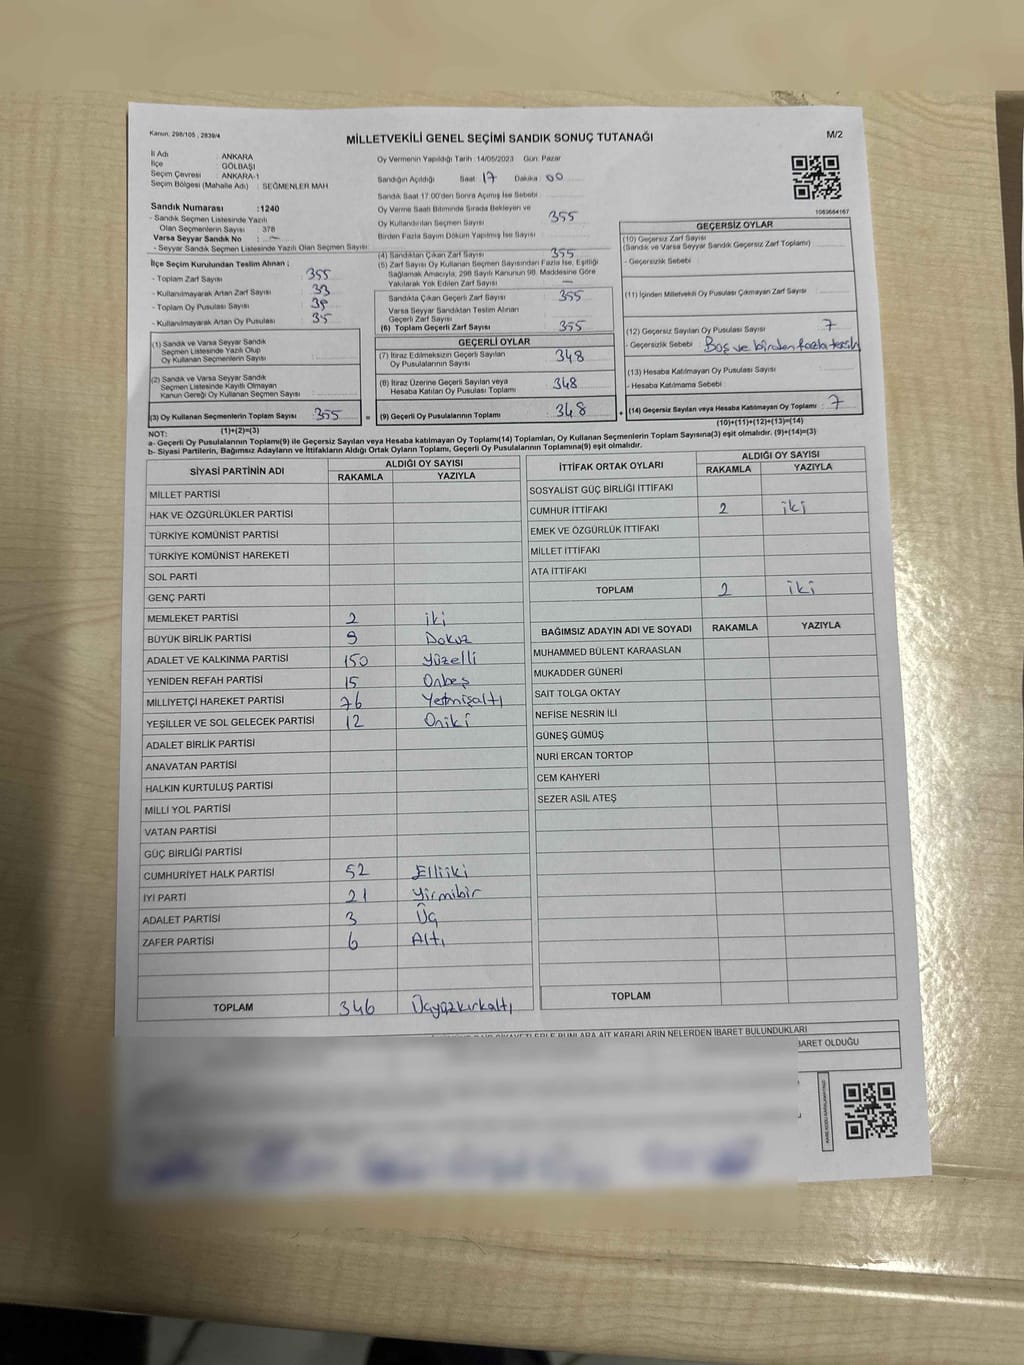 Kanun, 298/105 , 2839/4
MİLLETVEKİLİ GENEL SEÇİMİ SANDIK SONUÇ TUTANAĞI
M/2
İl Adı : ANKARA
İlçe : GÖLBAŞI
Seçim Çevresi : ANKARA-1
Seçim Bölgesi (Mahalle Adı) : SEĞMENLER MAH
Sandık Numarası :1240
- Sandık Seçmen Listesinde Yazılı
Olan Seçmenlerin Sayısı : 378
Varsa Seyyar Sandık No :
- Seyyar Sandık Seçmen Listesinde Yazılı Olan Seçmen Sayısı:
Oy Vermenin Yapıldığı Tarih :14/05/2023 Gün: Pazar
Sandığın Açıldığı Saat 17 Dakika 00
Sandık Saat 17:00'den Sonra Açılmış İse Sebebi
Oy Verme Saati Bitiminde Sırada Bekleyen ve
Oy Kullandırılan Seçmen Sayısı 355
Birden Fazla Sayım Döküm Yapılmış İse Sayısı
1063664167
İlçe Seçim Kurulundan Teslim Alınan ;
- Toplam Zarf Sayısı : 355
- Kullanılmayarak Artan Zarf Sayısı : 33
- Toplam Oy Pusulası Sayısı :
- Kullanılmayarak Artan Oy Pusulası : 35
(1) Sandık ve Varsa Seyyar Sandık
Seçmen Listesinde Yazılı Olup
Oy Kullanan Seçmenlerin Sayısı
(2) Sandık ve Varsa Seyyar Sandık
Seçmen Listesinde Kayıtlı Olmayan
Kanun Gereği Oy Kullanan Seçmen Sayısı
(3) Oy Kullanan Seçmenlerin Toplam Sayısı 355 =
(1)+(2)=(3)
(4) Sandıktan Çıkan Zarf Sayısı 355
(5) Zarf Sayısı Oy Kullanan Seçmen Sayısından Fazla İse, Eşitliği
Sağlamak Amacıyla, 298 Sayılı Kanunun 98. Maddesine Göre
Yakılarak Yok Edilen Zarf Sayısı —
Sandıkta Çıkan Geçerli Zarf Sayısı 355
Varsa Seyyar Sandıktan Teslim Alınan
Geçerli Zarf Sayısı
(6) Toplam Geçerli Zarf Sayısı 355
GEÇERLİ OYLAR
(7) İtiraz Edilmeksizin Geçerli Sayılan
Oy Pusulalarının Sayısı 348
(8) İtiraz Üzerine Geçerli Sayılan veya
Hesaba Katılan Oy Pusulası Toplamı 348
(9) Geçerli Oy Pusulalarının Toplamı 348 +
GEÇERSİZ OYLAR
(10) Geçersiz Zarf Sayısı
(Sandık ve Varsa Seyyar Sandık Geçersiz Zarf Toplamı)
- Geçersizlik Sebebi :
(11) İçinden Milletvekili Oy Pusulası Çıkmayan Zarf Sayısı
(12) Geçersiz Sayılan Oy Pusulası Sayısı 7
- Geçersizlik Sebebi : Boş ve birden fazla tercih
(13) Hesaba Katılmayan Oy Pusulası Sayısı
- Hesaba Katılmama Sebebi :
(14) Geçersiz Sayılan veya Hesaba Katılmayan Oy Toplamı 7
(10)+(11)+(12)+(13)=(14)
NOT:
a- Geçerli Oy Pusulalarının Toplamı(9) ile Geçersiz Sayılan veya Hesaba katılmayan Oy Toplamı(14) Toplamları, Oy Kullanan Seçmenlerin Toplam Sayısına(3) eşit olmalıdır. (9)+(14)=(3)
b- Siyasi Partilerin, Bağımsız Adayların ve İttifakların Aldığı Ortak Oyların Toplamı, Geçerli Oy Pusulalarının Toplamına(9) eşit olmalıdır.
SİYASİ PARTİNİN ADI ALDIĞI OY SAYISI
RAKAMLA YAZIYLA
MİLLET PARTİSİ
HAK VE ÖZGÜRLÜKLER PARTİSİ
TÜRKİYE KOMÜNİST PARTİSİ
TÜRKİYE KOMÜNİST HAREKETİ
SOL PARTİ
GENÇ PARTİ
MEMLEKET PARTİSİ 2 iki
BÜYÜK BİRLİK PARTİSİ 9 Dokuz
ADALET VE KALKINMA PARTİSİ 150 yüzelli
YENİDEN REFAH PARTİSİ 15 Onbeş
MİLLİYETÇİ HAREKET PARTİSİ 76 Yetmişaltı
YEŞİLLER VE SOL GELECEK PARTİSİ 12 Oniki
ADALET BİRLİK PARTİSİ
ANAVATAN PARTİSİ
HALKIN KURTULUŞ PARTİSİ
MİLLİ YOL PARTİSİ
VATAN PARTİSİ
GÜÇ BİRLİĞİ PARTİSİ
CUMHURİYET HALK PARTİSİ 52 Elliiki
İYİ PARTİ 21 Yirmibir
ADALET PARTİSİ 3 Üç
ZAFER PARTİSİ 6 Altı
TOPLAM 346 Üçyüzkırkaltı
İTTİFAK ORTAK OYLARI ALDIĞI OY SAYISI
RAKAMLA YAZIYLA
SOSYALİST GÜÇ BİRLİĞİ İTTİFAKI
CUMHUR İTTİFAKI 2 iki
EMEK VE ÖZGÜRLÜK İTTİFAKI
MİLLET İTTİFAKI
ATA İTTİFAKI
TOPLAM 2 iki
BAĞIMSIZ ADAYIN ADI VE SOYADI RAKAMLA YAZIYLA
MUHAMMED BÜLENT KARAASLAN
MUKADDER GÜNERİ
SAİT TOLGA OKTAY
NEFİSE NESRİN İLİ
GÜNEŞ GÜMÜŞ
NURİ ERCAN TORTOP
CEM KAHYERİ
SEZER ASİL ATEŞ
TOPLAM
ŞİKAYETLERLE BUNLARA AİT KARARLARIN NELERDEN İBARET BULUNDUKLARI
BARET OLDUĞU